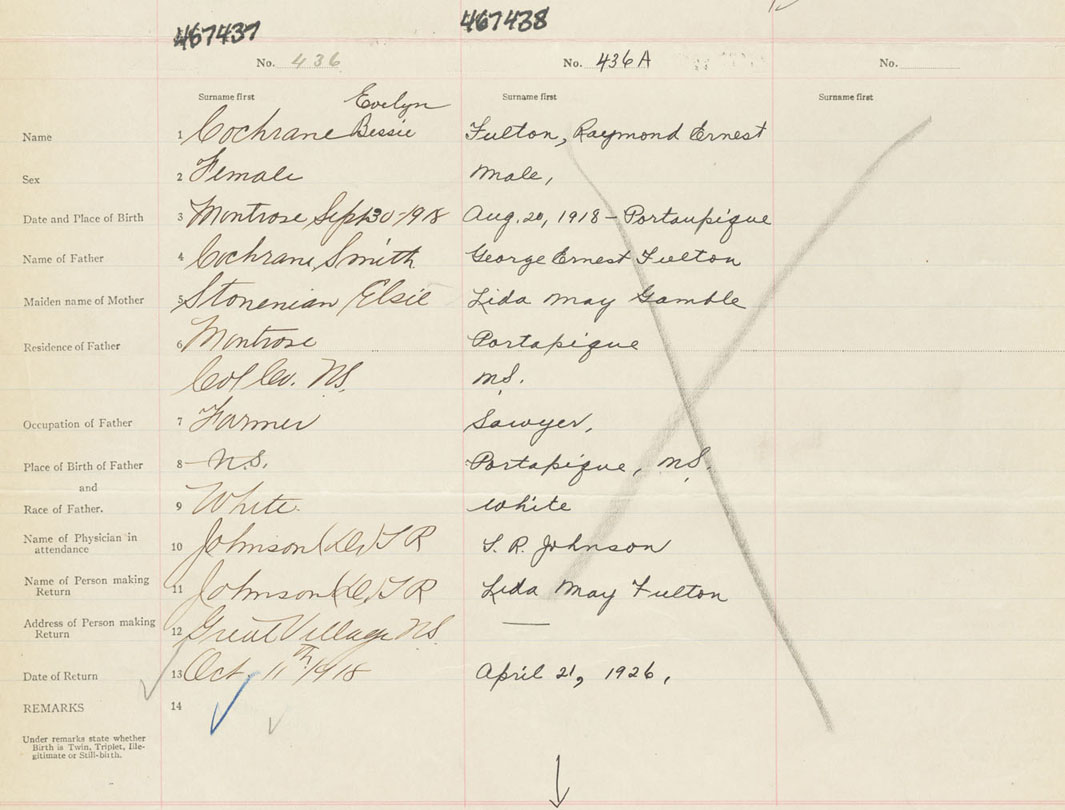 467437 467438
No. 436 No. 436A No.
Surname first Surname first Surname first
Evelyn
Name 1 Cochrane Bessie Fulton, Raymond Ernest
Sex 2 Female Male,
Date and Place of Birth 3 Montrose Sept 30-1918 Aug. 20, 1918 - Portaupique
Name of Father 4 Cochrane, Smith George Ernest Fulton
Maiden name of Mother 5 Stonenian, Elsie Lida May Gamble
Residence of Father 6 Montrose Portapique
Col Co. N.S. N.S.
Occupation of Father 7 Farmer Sawyer,
Place of Birth of Father 8 N.S. Portapique, N.S.
and
Race of Father. 9 White. White
Name of Physician in
attendance 10 Johnson (Dr) T R T. R. Johnson
Name of Person making
Return 11 Johnson (Dr) T R Lida May Fulton
Address of Person making
Return 12 Great Village N.S. —
Date of Return 13 Oct. 11th 1918 April 21, 1926,
REMARKS 14
Under remarks state whether
Birth is Twin, Triplet, Ille-
gitimate or Still-birth.